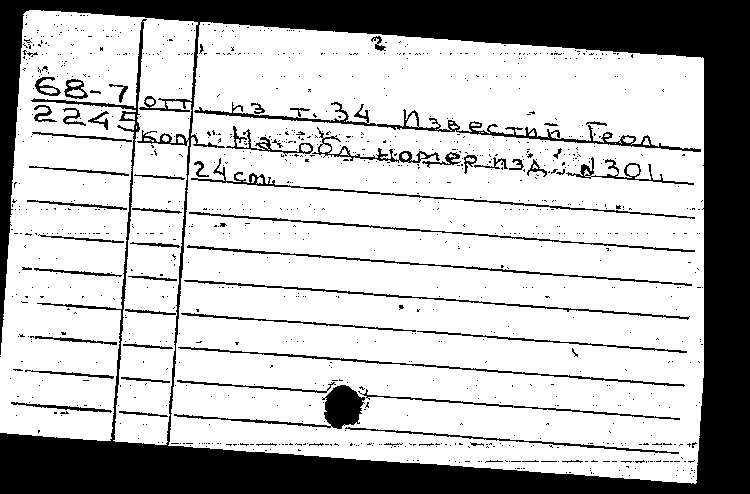 2
68-7
2245
отт. из т. 34 Известий Геол.
ком. На обл. номер изд.: N 301.
24 cm.